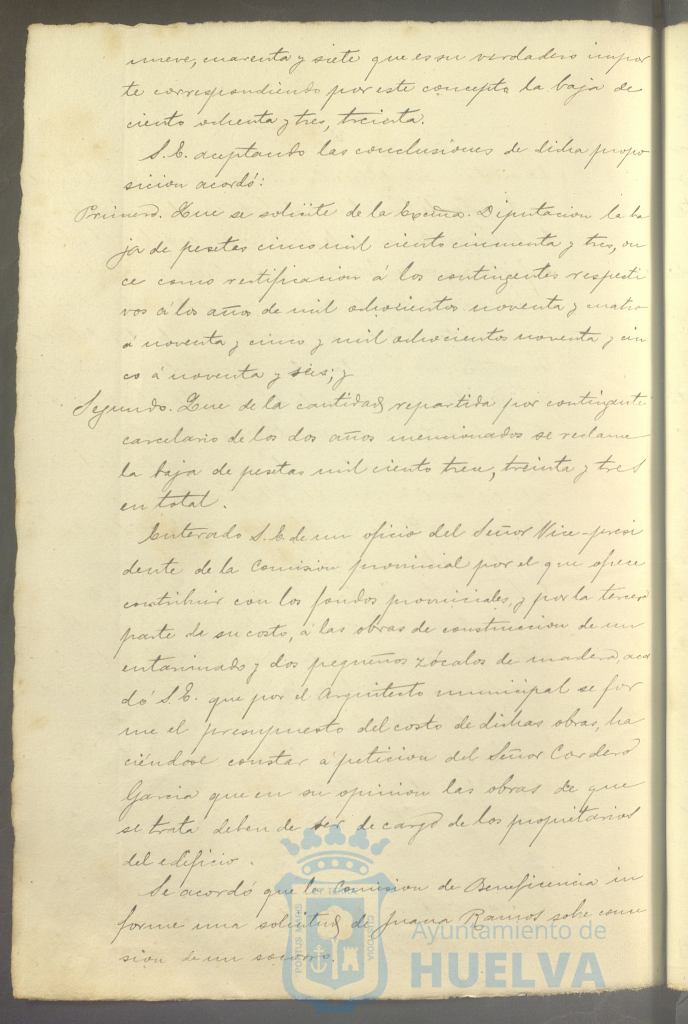 nueve, cuarenta y siete que es su verdadero impor
te correspondiendo por este concepto la baja de
ciento ochenta y tres, treinta.
S. E. aceptando las conclusiones de dicha propo
sicion acordó:
Primero. Que se solicite de la Excma. Diputacion la ba
ja de pesetas cinco mil ciento cincuenta y tres, on
ce como rectificacion á los contingentes respecti
vos á los años de mil ochocientos noventa y cuatro
á noventa y cinco y mil ochocientos noventa y cin
co á noventa y seis; y
Segundo. Que de la cantidad repartida por contingente
carcelario de los dos años mencionados se reclame
la baja de pesetas mil ciento trece, treinta y tres
en total.
Enterado S. E. de un oficio del Señor Vice-presi
dente de la Comision provincial por el que ofrece
contribuir con los fondos provinciales, y por la tercera
parte de su costo, á las obras de construccion de un
entarimado y dos pequeños zócalos de madera, acor
dó S. E. que por el Arquitecto municipal se for
me el presupuesto del costo de dichas obras, ha
ciéndose constar á peticion del Señor Cordero
Garcia que en su opinion las obras de que
se trata deben de ser de cargo de los propietarios
del edificio.
Se acordó que la Comision de Beneficencia in
forme una solicitud de Juana Ramos sobre conce
sion de un socorro.
PORTUS MARIS
ET TERRAE
CUSTODIA
Ayuntamiento de
HUELVA